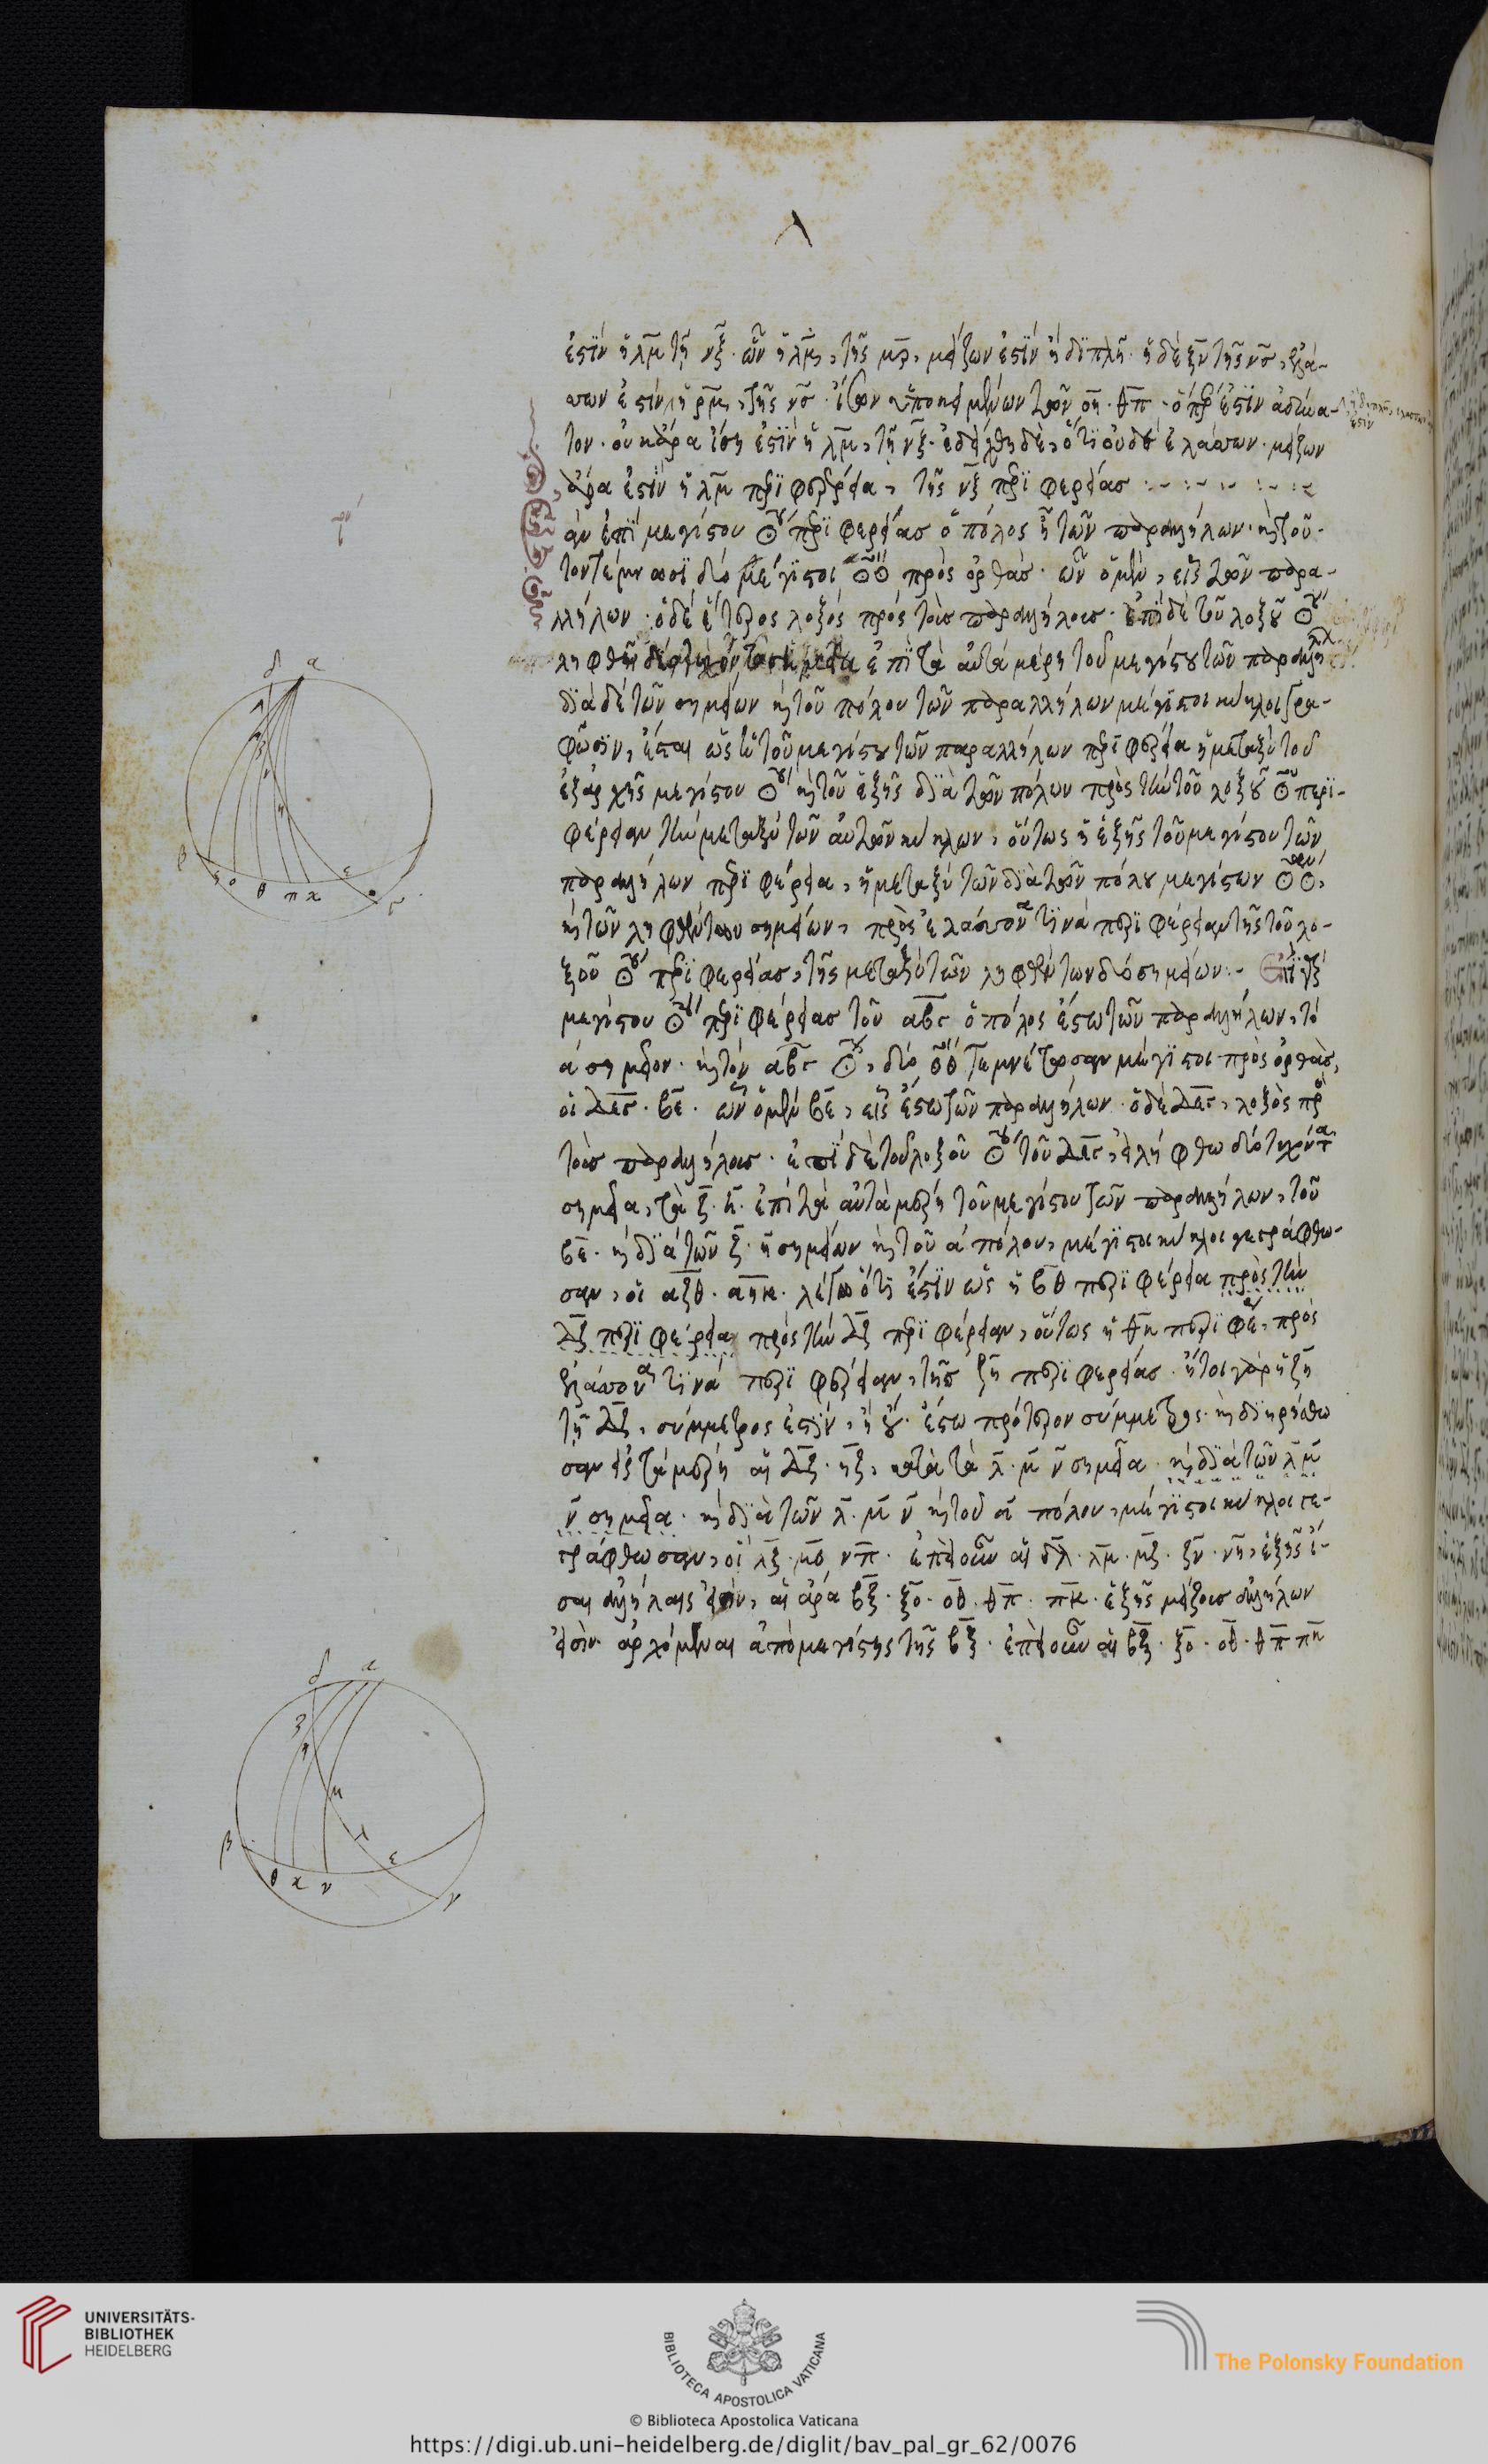 λ
ἐστὶν ἡ λμ τῇ νξ. ὧν ἡ λμ, τῆς μρ, μείζων ἐστὶν ἢ διπλῆ. ἡ δὲ ξν τῆς νσ, ἐλά-
τον. οὐκ ἄρα ἴση ἐστὶν ἡ λμ, τῇ νξ. ἐδείχθη δὲ, ὅτι οὐδὲ ἐλάττων. μείζων
ἄρα ἐστὶν ἡ λμ περιφέρεια, τῆς νξ περιφερείας
ἐὰν ἐπὶ μεγίστου ☉ου περιφερείας ὁ πόλος ᾖ τῶν παραλλήλων. καὶ τοῦ-
τον τέμνωσι δύο μέγιστοι ☉☉ πρὸς ὀρθὰς. ὧν ὁ μὲν, εἷς τῶν παρα-
λλήλων. ὁ δὲ ἕτερος λοξὸς πρὸς τοὺς παραλλήλους. ἐπὶ δὲ τοῦ λοξοῦ ☉ου
ληφθῇ δύο τυχόντα σημεῖα ἐπὶ τὰ αὐτὰ μέρη τοῦ μεγίστου τῶν παραλλήλων
διὰ δὲ τῶν σημείων καὶ τοῦ πόλου τῶν παραλλήλων μέγιστοι κύκλοι γρα-
φῶσιν, ἔσται ὡς ἡ τοῦ μεγίστου τῶν παραλλήλων περιφέρεια ἡ μεταξὺ τοῦ
ἐξ ἀρχῆς μεγίστου ☉ου καὶ τοῦ ἑξῆς διὰ τῶν πόλων πρὸς τὴν τοῦ λοξοῦ ☉ου περι-
φέρειαν τὴν μεταξὺ τῶν αὐτῶν κύκλων, οὕτως ἡ ἑξῆς τοῦ μεγίστου τῶν
παραλλήλων περιφέρεια, ἡ μεταξὺ τῶν διὰ τῶν πόλου μεγίστων ☉☉,
καὶ τῶν ληφθέντων σημείων, πρὸς ἐλάττονά τινα περιφέρειαν τῆς τοῦ λο-
ξοῦ ☉ου περιφερείας, τῆς μεταξὺ τῶν ληφθέντων δύο σημείων :- Ἐπὶ γὰρ
μεγίστου ☉ου περιφερείας τοῦ αβς ὁ πόλος ἔστω τῶν παραλλήλων, τὸ
α σημεῖον. καὶ τὸν αβς ☉, δύο ☉☉ τεμνέτωσαν μέγιστοι πρὸς ὀρθὰς,
οἱ δες. βε. ὧν ὁ μὲν βε, εἷς ἔστω τῶν παραλλήλων. ὁ δὲ δες, λοξὸς πρὸς
τοὺς παραλλήλους. ἐπὶ δὲ τοῦ λοξοῦ ☉ου τοῦ δες, εἰλήφθω δύο τυχόντα
σημεῖα, τὰ ξ. η. ἐπὶ τὰ αὐτὰ μέρη τοῦ μεγίστου τῶν παραλλήλων, τοῦ
βε. καὶ διὰ τῶν ξ. η σημείων καὶ τοῦ α πόλου, μέγιστοι κύκλοι γεγράφθω-
σαν, οἱ αξθ. αηκ. λέγω ὅτι ἐστὶν ὡς ἡ βθ περιφέρεια πρὸς τὴν
δξ περιφέρεια πρὸς τὴν δξ περιφέρειαν, οὕτως ἡ θκ περιφέρεια, πρὸς
ἐλάττονά τινα περιφέρειαν, τῆς ξη περιφερείας. ἤτοι γὰρ ἡ ξη
τῇ δξ, σύμμετρος ἐστὶν, ἢ οὔ. ἔστω πρότερον σύμμετρος. καὶ διῃρήσθω
σαν εἰς τὰ μέρη αἱ δξ. ηξ, κατὰ τὰ λ. μ ν σημεῖα. καὶ διὰ τῶν λ μ
ν σημεῖα. καὶ διὰ τῶν λ. μ ν καὶ τοῦ α πόλου, μέγιστοι κύκλοι γε-
γράφθωσαν, οἱ λξ. μο νπ. ἐπεὶ οὖν αἱ δλ. λμ. μξ. ξν. νη, ἑξῆς ἴ-
σαι ἀλλήλαις εἰσὶν, αἱ ἄρα βξ. ξο. οθ. θπ. πκ. ἑξῆς μείζους ἀλλήλων
εἰσὶν ἀρχόμεναι ἀπὸ μεγίστης τῆς βξ. ἐπεὶ οὖν αἱ βξ. ξο. οθ. θπ πκ
UNIVERSITÄTS-
BIBLIOTHEK
HEIDELBERG
BIBLIOTECA APOSTOLICA VATICANA
The Polonsky Foundation
© Biblioteca Apostolica Vaticana
https://digi.ub.uni-heidelberg.de/diglit/bav_pal_gr_62/0076